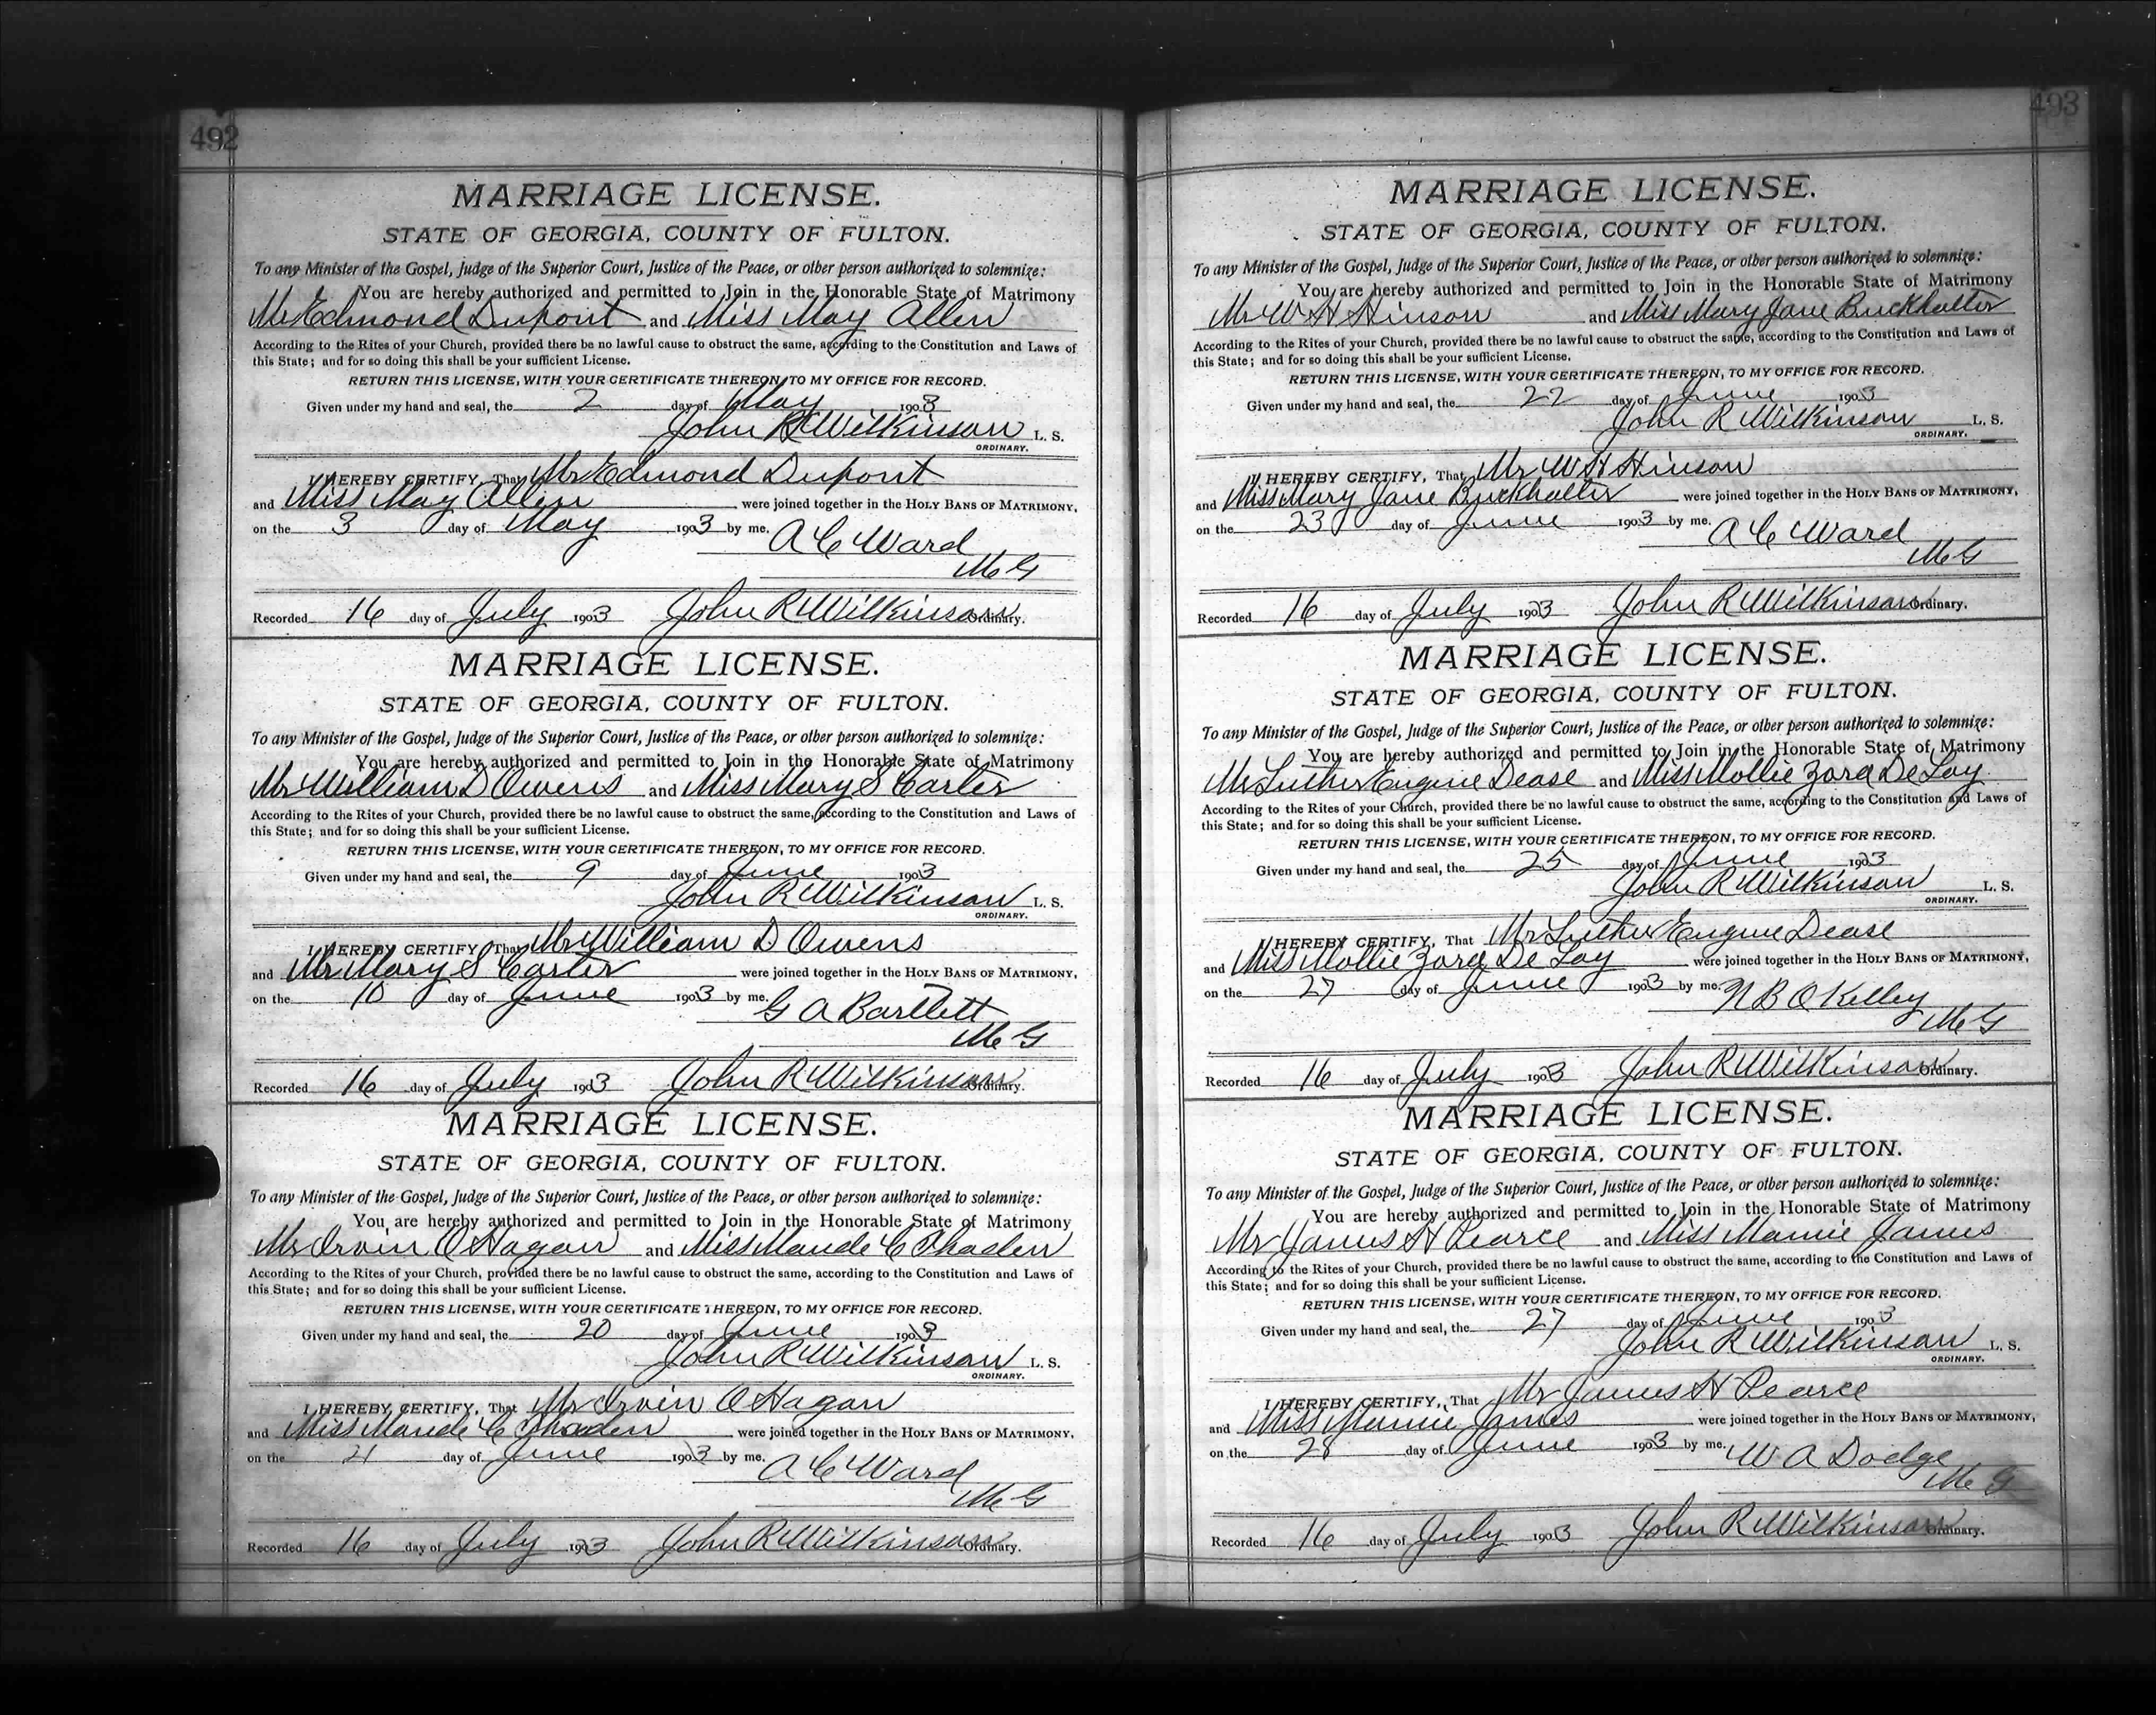 492
MARRIAGE LICENSE.
STATE OF GEORGIA, COUNTY OF FULTON.
To any Minister of the Gospel, Judge of the Superior Court, Justice of the Peace, or other person authorized to solemnize:
You are hereby authorized and permitted to Join in the Honorable State of Matrimony
Mr Edmond Dupont and Miss May Allen
According to the Rites of your Church, provided there be no lawful cause to obstruct the same, according to the Constitution and Laws of
this State; and for so doing this shall be your sufficient License.
RETURN THIS LICENSE, WITH YOUR CERTIFICATE THEREON, TO MY OFFICE FOR RECORD.
Given under my hand and seal, the 2 day of May 1903
John R Wilkinson L. S.
ORDINARY.
I HEREBY CERTIFY, That Mr Edmond Dupont
and Miss May Allen were joined together in the HOLY BANS OF MATRIMONY,
on the 3 day of May 1903 by me. A C Ward
M G
Recorded 16 day of July 1903 John R Wilkinson Ordinary.
MARRIAGE LICENSE.
STATE OF GEORGIA, COUNTY OF FULTON.
To any Minister of the Gospel, Judge of the Superior Court, Justice of the Peace, or other person authorized to solemnize:
You are hereby authorized and permitted to Join in the Honorable State of Matrimony
Mr William D Owens and Miss Mary S Carter
According to the Rites of your Church, provided there be no lawful cause to obstruct the same, according to the Constitution and Laws of
this State; and for so doing this shall be your sufficient License.
RETURN THIS LICENSE, WITH YOUR CERTIFICATE THEREON, TO MY OFFICE FOR RECORD.
Given under my hand and seal, the 9 day of June 1903
John R Wilkinson L. S.
ORDINARY.
I HEREBY CERTIFY, That Mr William D Owens
and Mr Mary S Carter were joined together in the HOLY BANS OF MATRIMONY,
on the 10 day of June 1903 by me. G A Bartlett
M G
Recorded 16 day of July 1903 John R Wilkinson Ordinary.
MARRIAGE LICENSE.
STATE OF GEORGIA, COUNTY OF FULTON.
To any Minister of the Gospel, Judge of the Superior Court, Justice of the Peace, or other person authorized to solemnize:
You are hereby authorized and permitted to Join in the Honorable State of Matrimony
Mr Irvin O Hagan and Miss Maude C
According to the Rites of your Church, provided there be no lawful cause to obstruct the same, according to the Constitution and Laws of
this State; and for so doing this shall be your sufficient License.
RETURN THIS LICENSE, WITH YOUR CERTIFICATE THEREON, TO MY OFFICE FOR RECORD.
Given under my hand and seal, the 20 day of June 1903
John R Wilkinson L. S.
ORDINARY.
I HEREBY CERTIFY, That Mr Irvin O Hagan
and Miss Maude C were joined together in the HOLY BANS OF MATRIMONY,
on the day of June 1903 by me. A C Ward
M G
Recorded 16 day of July 1903 John R Wilkinson Ordinary.
493
MARRIAGE LICENSE.
STATE OF GEORGIA, COUNTY OF FULTON.
To any Minister of the Gospel, Judge of the Superior Court, Justice of the Peace, or other person authorized to solemnize:
You are hereby authorized and permitted to Join in the Honorable State of Matrimony
Mr W H Hinson and Miss Mary Jane Burkhalter
According to the Rites of your Church, provided there be no lawful cause to obstruct the same, according to the Constitution and Laws of
this State; and for so doing this shall be your sufficient License.
RETURN THIS LICENSE, WITH YOUR CERTIFICATE THEREON, TO MY OFFICE FOR RECORD.
Given under my hand and seal, the 22 day of June 1903
John R Wilkinson L. S.
ORDINARY.
I HEREBY CERTIFY, That Mr W H Hinson
and Miss Mary Jane Burkhalter were joined together in the HOLY BANS OF MATRIMONY,
on the 23 day of June 1903 by me. A C Ward
M G
Recorded 16 day of July 1903 John R Wilkinson Ordinary.
MARRIAGE LICENSE.
STATE OF GEORGIA, COUNTY OF FULTON.
To any Minister of the Gospel, Judge of the Superior Court, Justice of the Peace, or other person authorized to solemnize:
You are hereby authorized and permitted to Join in the Honorable State of Matrimony
Mr Luther Eugene Dease and Miss Mollie Zora DeLay
According to the Rites of your Church, provided there be no lawful cause to obstruct the same, according to the Constitution and Laws of
this State; and for so doing this shall be your sufficient License.
RETURN THIS LICENSE, WITH YOUR CERTIFICATE THEREON, TO MY OFFICE FOR RECORD.
Given under my hand and seal, the 25 day of June 1903
John R Wilkinson L. S.
ORDINARY.
I HEREBY CERTIFY, That Mr Luther Eugene Dease
and Miss Mollie Zora De Lay were joined together in the HOLY BANS OF MATRIMONY,
on the 27 day of June 1903 by me. N B O Kelley
M G
Recorded 16 day of July 1903 John R Wilkinson Ordinary.
MARRIAGE LICENSE.
STATE OF GEORGIA, COUNTY OF FULTON.
To any Minister of the Gospel, Judge of the Superior Court, Justice of the Peace, or other person authorized to solemnize:
You are hereby authorized and permitted to Join in the Honorable State of Matrimony
Mr James H Pearce and Miss Mamie James
According to the Rites of your Church, provided there be no lawful cause to obstruct the same, according to the Constitution and Laws of
this State; and for so doing this shall be your sufficient License.
RETURN THIS LICENSE, WITH YOUR CERTIFICATE THEREON, TO MY OFFICE FOR RECORD.
Given under my hand and seal, the 27 day of June 1903
John R Wilkinson L. S.
ORDINARY.
I HEREBY CERTIFY, That Mr James H Pearce
and Miss Mamie James were joined together in the HOLY BANS OF MATRIMONY,
on the 28 day of June 1903 by me. W A Dodge
M G
Recorded 16 day of July 1903 John R Wilkinson Ordinary.